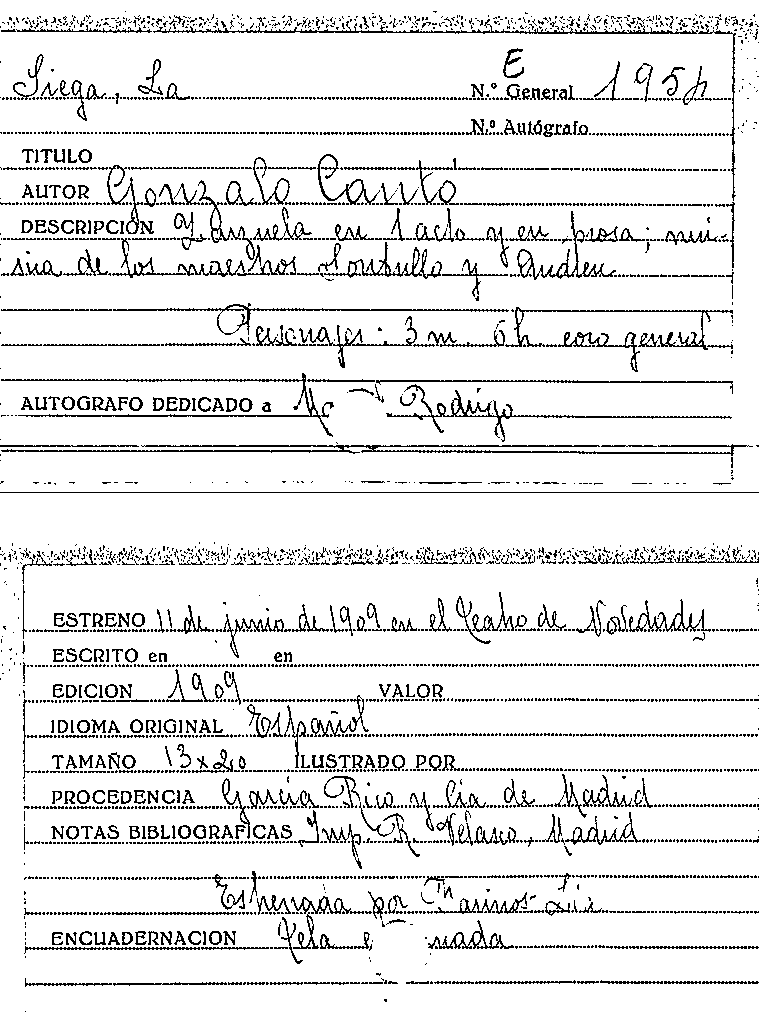 E
Siega, La N.º General 1954
N.º Autógrafo
TITULO
AUTOR Gonzalo Cantó
DESCRIPCIÓN Zarzuela en 1 acto y en prosa; mú-
sica de los maestros Sontullo y Andreu
Personajes: 3 m. 6 h. coro general
AUTOGRAFO DEDICADO a Rodrigo
ESTRENO 11 de junio de 1909 en el Teatro de Novedades
ESCRITO en en
EDICION 1909 VALOR
IDIOMA ORIGINAL Español
TAMAÑO 13 x 20 ILUSTRADO POR
PROCEDENCIA García Rico y Cía de Madrid
NOTAS BIBLIOGRAFICAS Imp. R. Velasco, Madrid
Estrenada por
ENCUADERNACION Tela